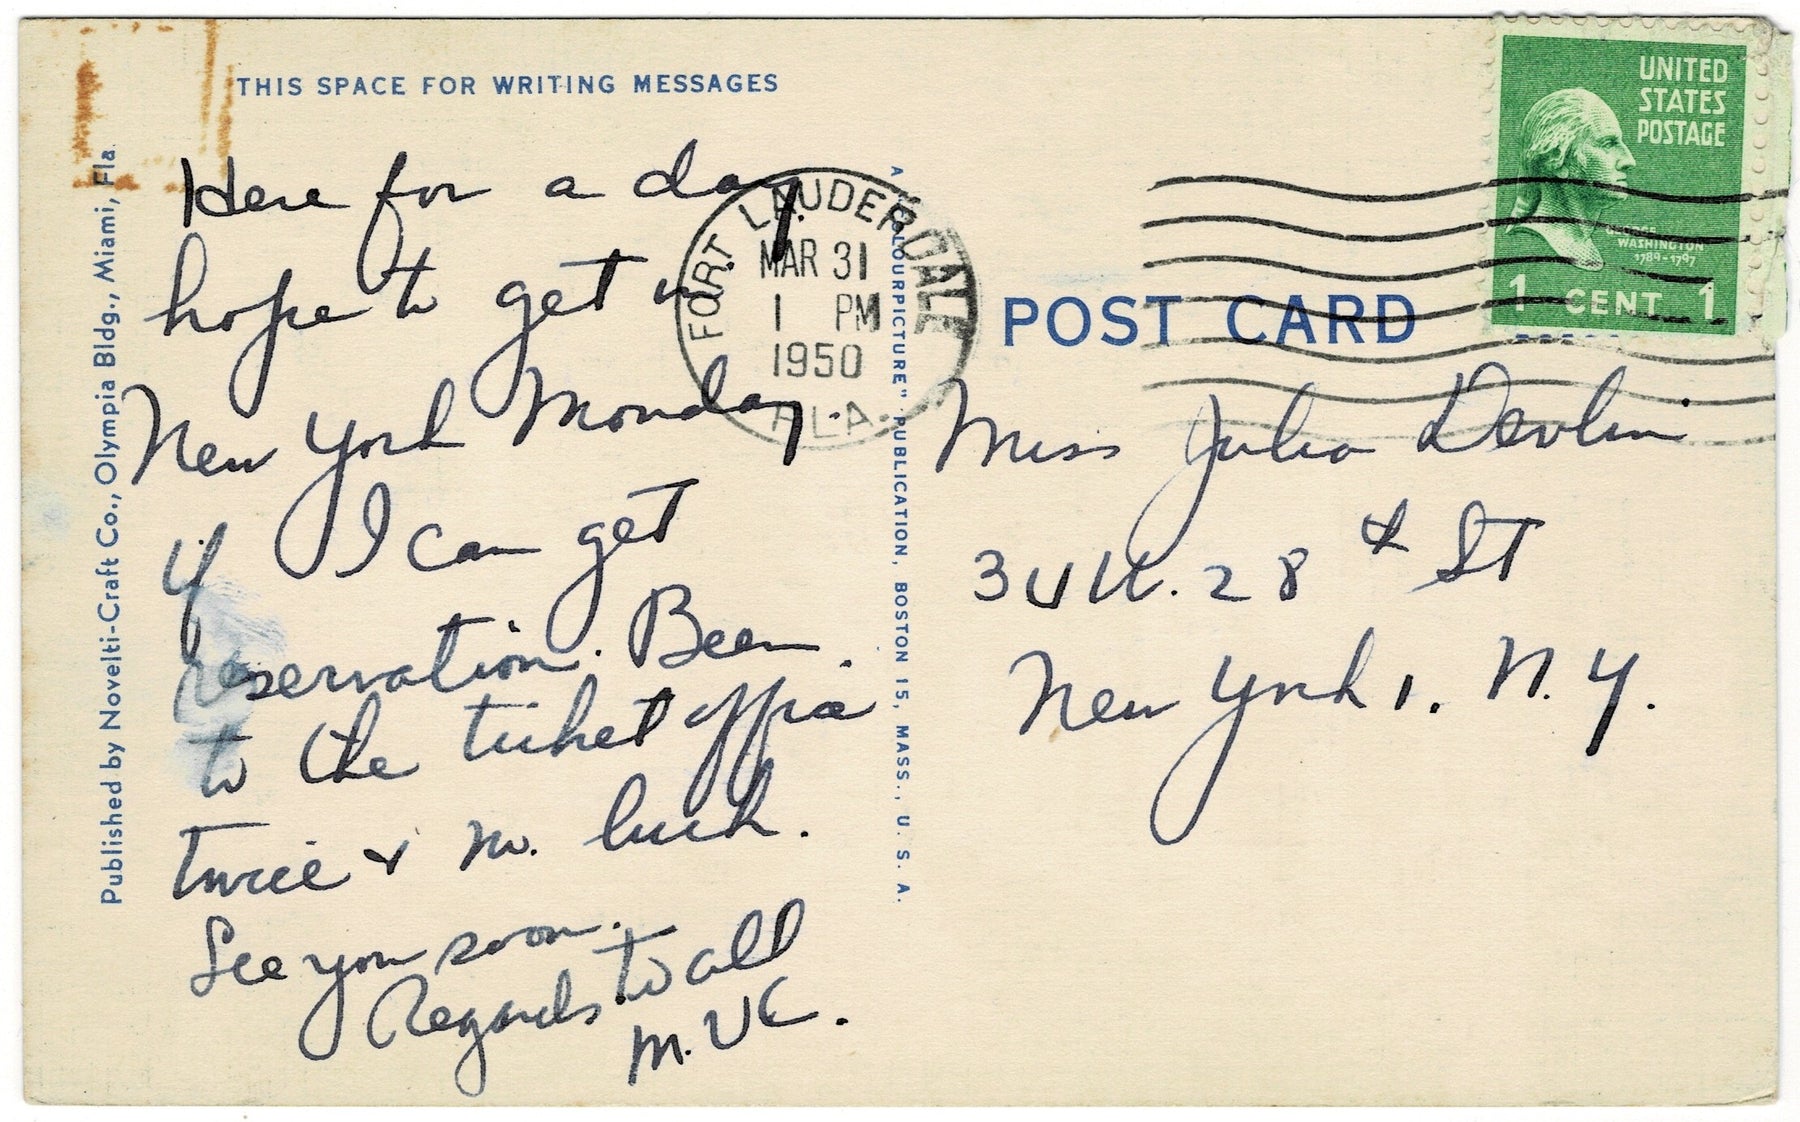 THIS SPACE FOR WRITING MESSAGES
Here for a day.
hope to get in
New York Monday.
if I can get
reservation. Been
to the ticket office
twice & no luck.
See you soon.
Regards to all
M.
Published by Novelti-Craft Co., Olympia Bldg., Miami, Fla.
FORT LAUDERDALE
MAR 31
1 PM
1950
FLA.
A "COLOURPICTURE" PUBLICATION, BOSTON 15, MASS., U. S. A.
POST CARD
UNITED
STATES
POSTAGE
GEORGE
WASHINGTON
1789-1797
1 CENT 1
Miss Julia Devlin
28th St
New York 1. N. Y.